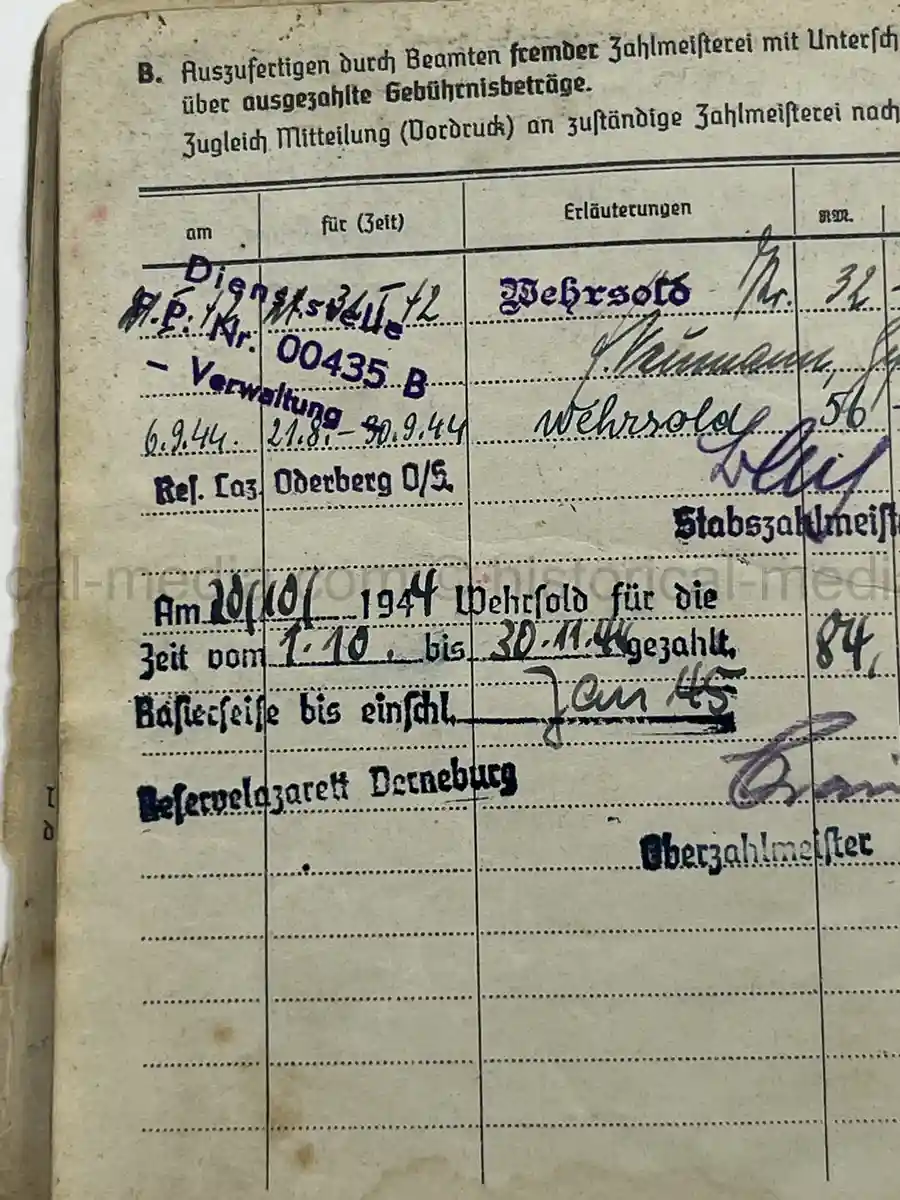 B. Auszufertigen durch Beamten fremder Zahlmeisterei mit Untersch
über ausgezahlte Gebührnisbeträge.
Zugleich Mitteilung (Vordruck) an zuständige Zahlmeisterei nach
am für (Zeit) Erläuterungen RM.
Dienststelle
F. P. Nr. 00435 B
- Verwaltung
Wehrsold 32
Neumann,
6.9.44. 21.8.-30.9.44 Wehrsold 56
Res. Laz. Oderberg O/S.
Stabszahlmeist
cal-media.com © historical-medi
Am 20/10/ 1944 Wehrsold für die
Zeit vom 1.10. bis 30.11.44 gezahlt. 84,
Rasierseife bis einschl. Jan 45
Reservelazarett Derneburg
Oberzahlmeister